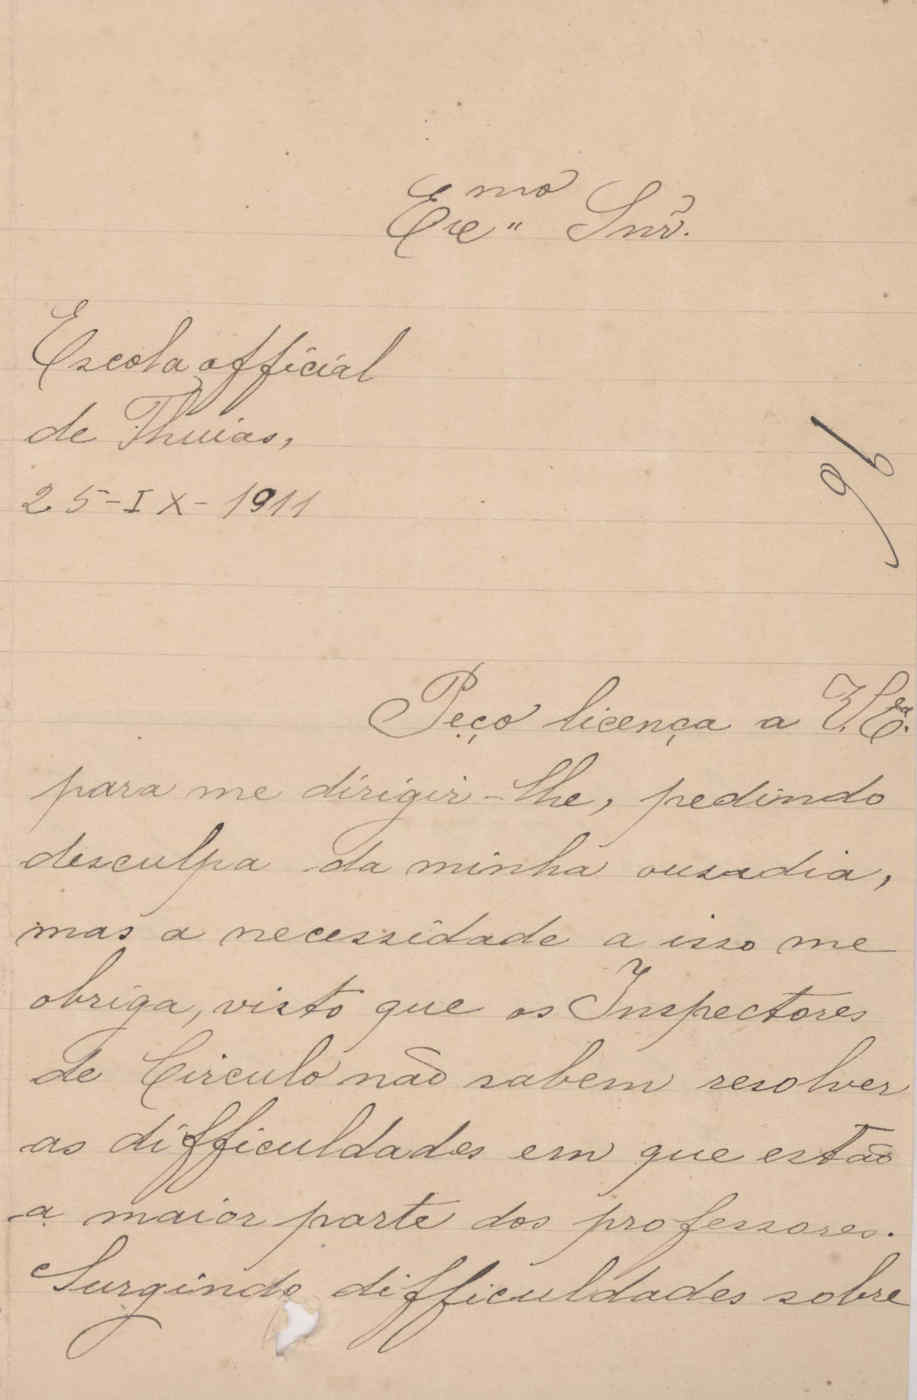 Exc.mo Snr.
Escola official
de Thuias,
25-IX-1911
96
Peço licença a V. Ex.a
para me dirigir-lhe, pedindo
desculpa da minha ousadia,
mas a necessidade a isso me
obriga, visto que os Inspectores
de Circulo não sabem resolver
as difficuldades em que estão
a maior parte dos professores.
Surgindo difficuldades sobre